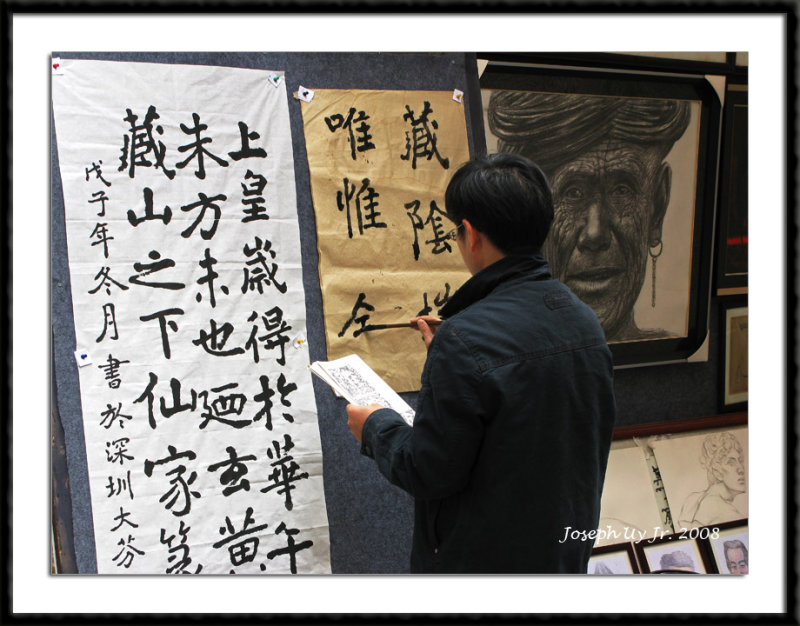 上皇歲得於華午
朱方未也廼玄黃
藏山之下仙家
戊子年冬月書於深圳大芬
藏陰
唯惟
Joseph Uy Jr. 2008